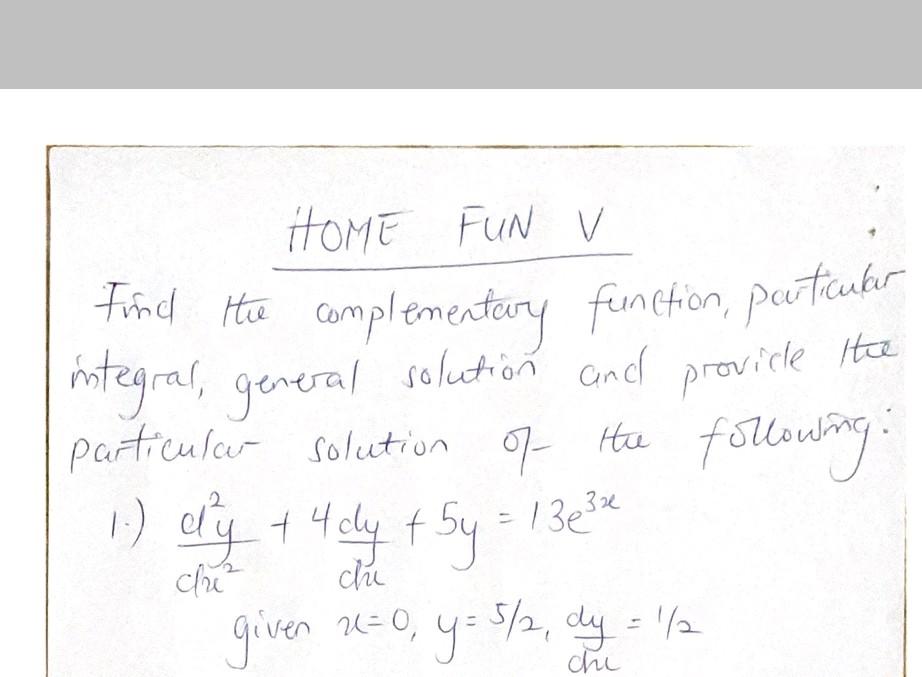 HOME FUN V
Find the complementary function, particular
integral, general solution and provide the
particular solution of the following:
1.) d²y/dx² + 4dy/dx + 5y = 13e³ˣ
given x=0, y= 5/2, dy/dx = 1/2